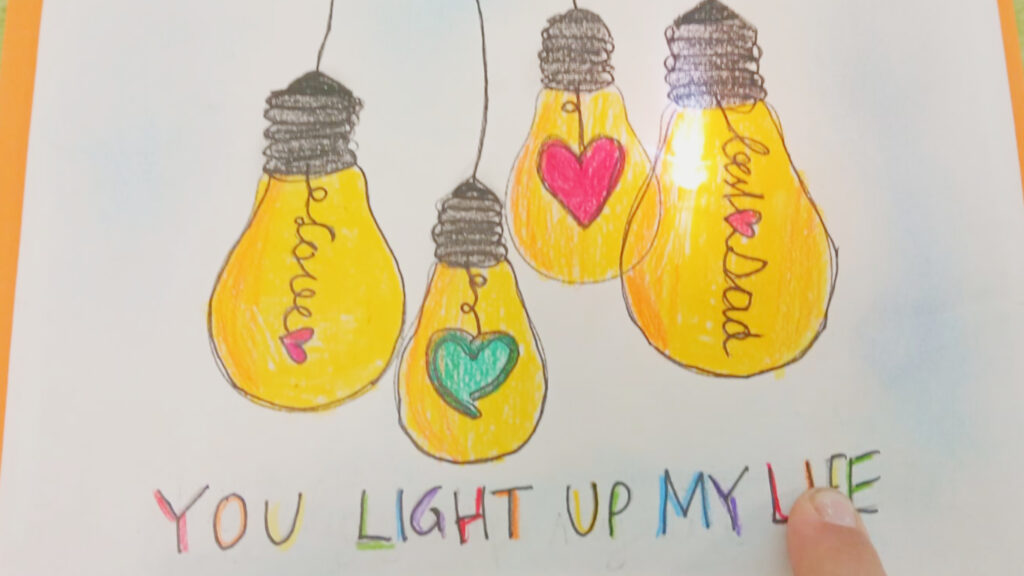 Love
best Dad
YOU LIGHT UP MY LIFE